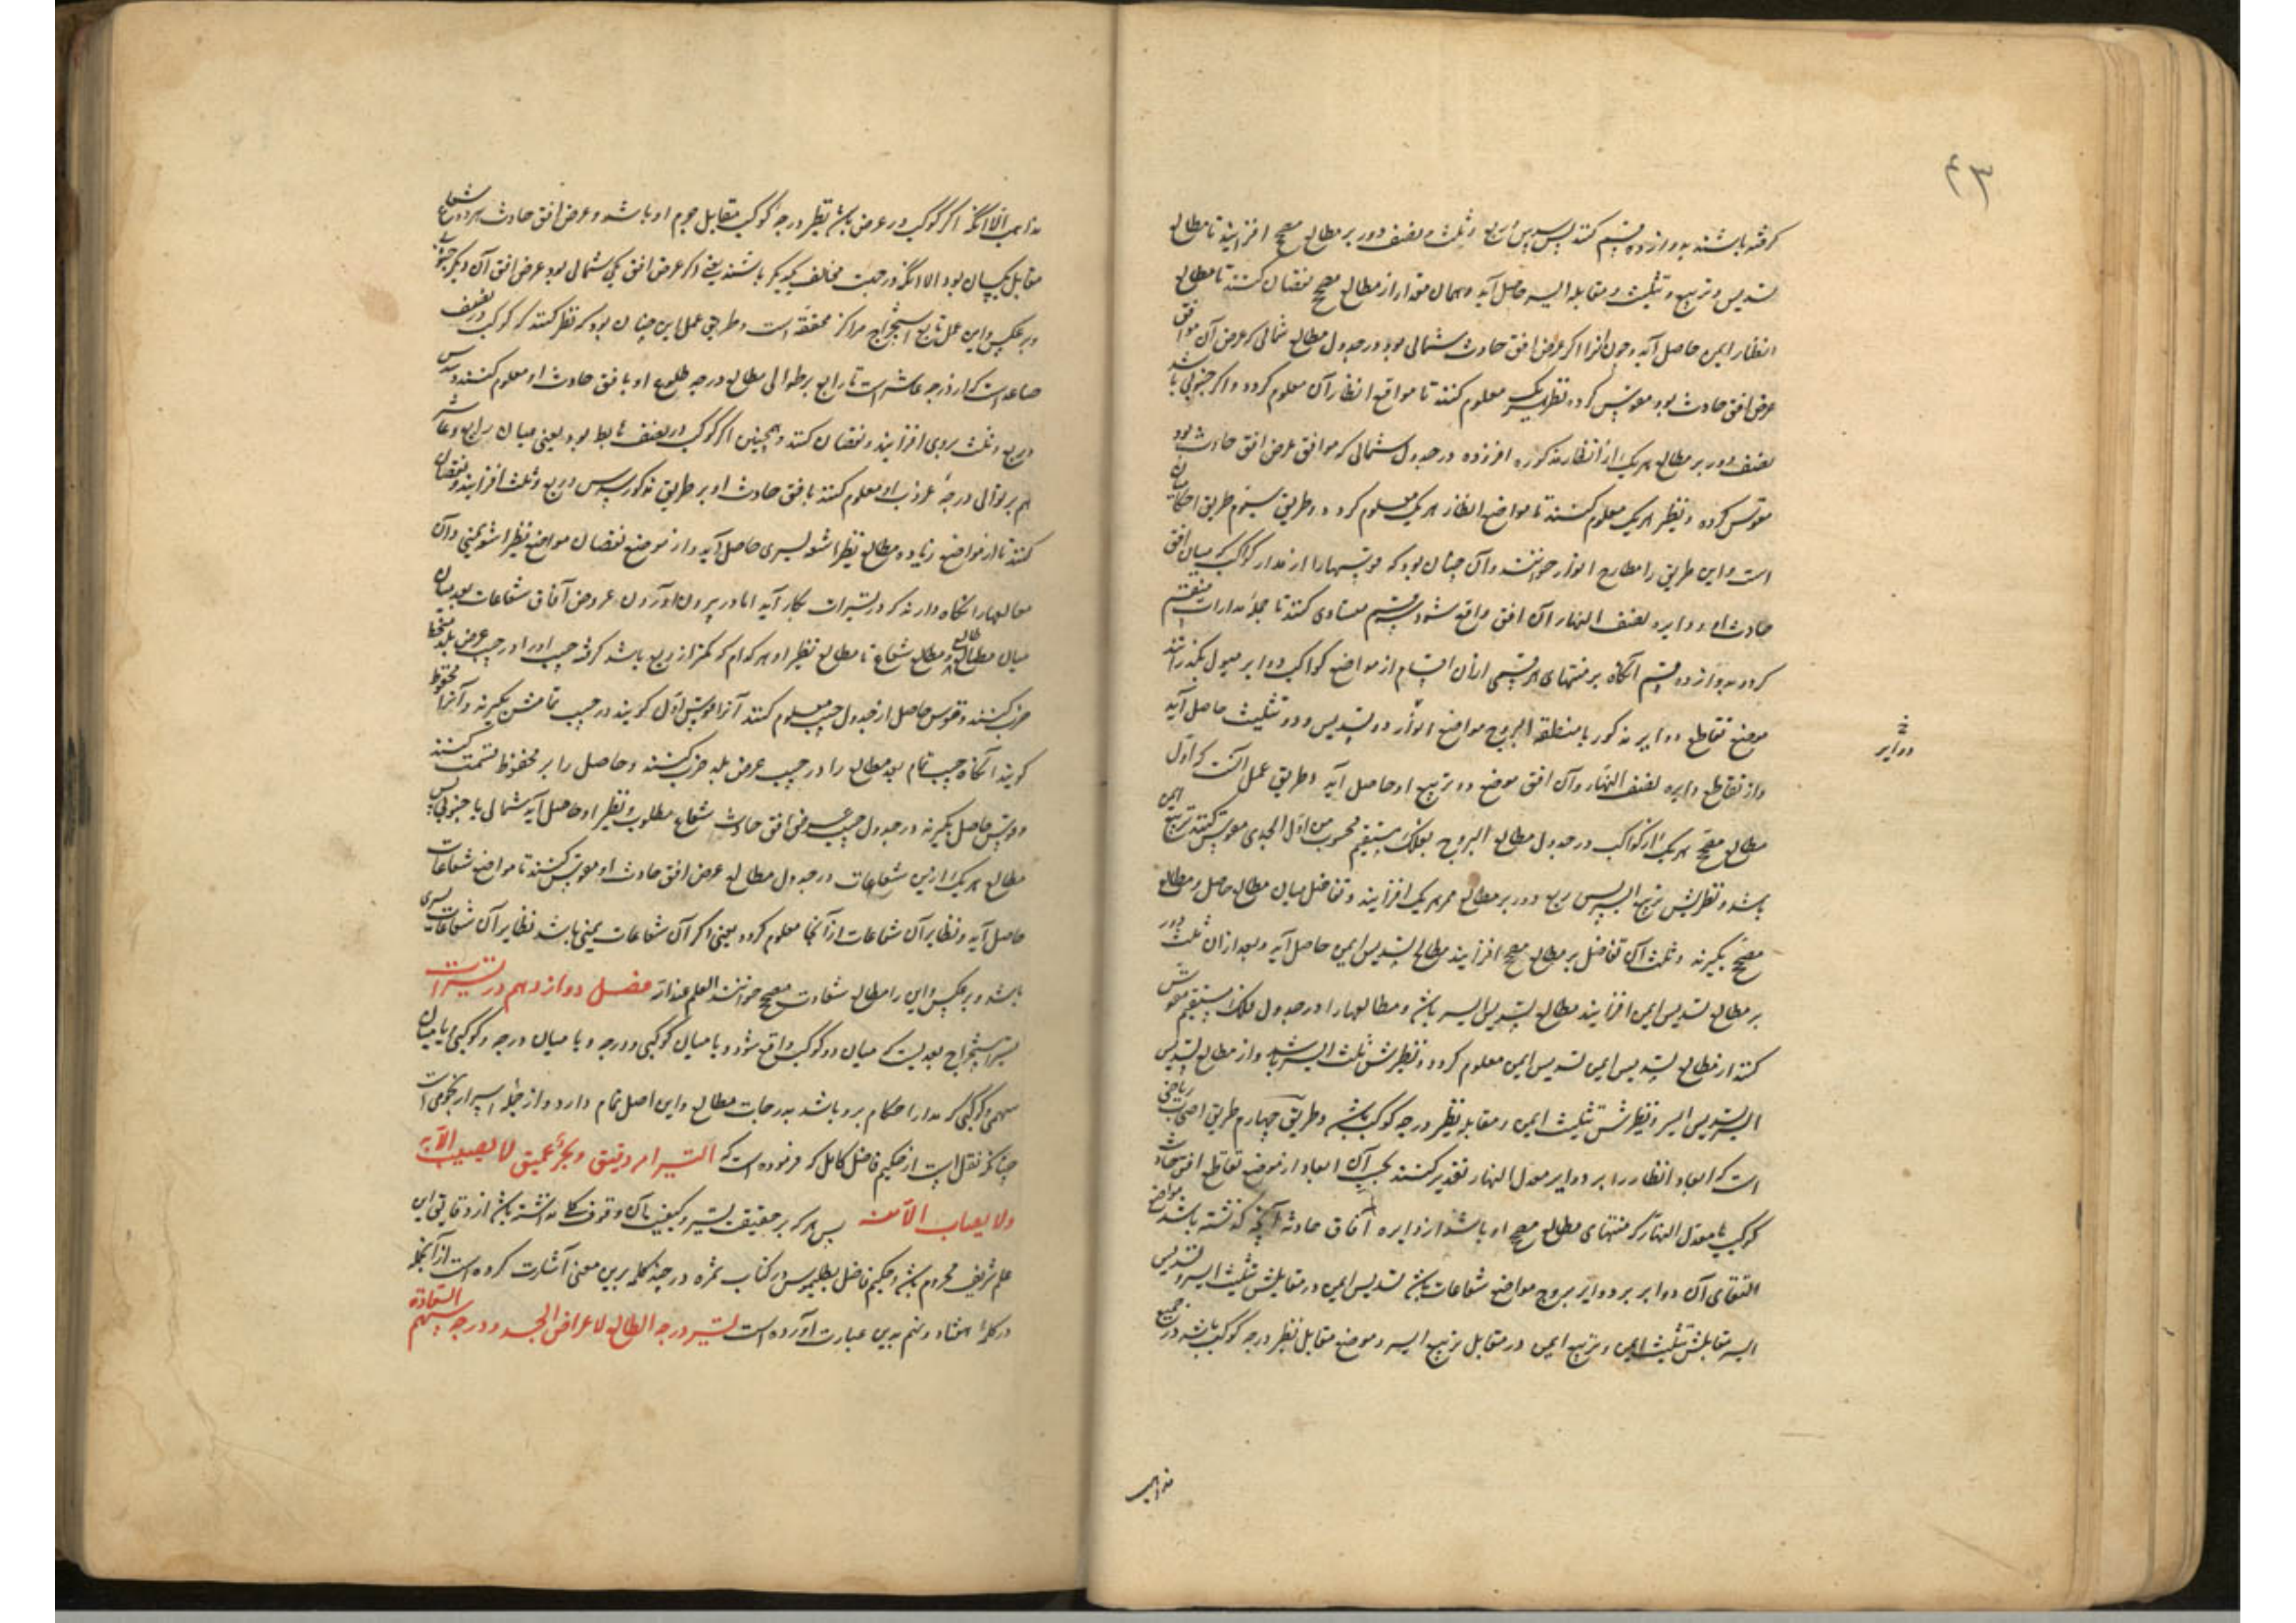 ۴۳
کرفته باشند بدوازده قسم کنند پس سدس و ربع و ثلث و نصف دور بر مطالع مصحح افزایند تا مطالع
تسدیس و تربیع و تثلیث و مقابله ایسر حاصل آید و همان مقدار از مطالع مصحح نقصان کنند تا مطالع
انظار ایمن حاصل آید و چون انرا اکر عرض افق حادث شمالی بود در جدول مطالع شمالی که عرض آن موافق
عرض افق حادث بود مقوس کرده نظیر هر یک معلوم کنند تا مواقع انظار آن معلوم کردد و اکر جنوبی باشد
نصف دور بر مطالع هر یک از انظار مذکوره افزوده در جدول شمالی که موافق عرض افق حادث بود
مقوس کرده و نظیر هر یک معلوم کنند تا مواضع انظار هر یک معلوم کردد و طریق سیوم طریق احکامیان
است و این طریق را مطارح انوار خوانند و آن چنان بود که قوسها را از مدار کواکب که میان افق
حادث او و دایره نصف النهار آن افق واقع شود بقسم متساوی کنند تا جمله مدارات منقسم
کردد بدوازده قسم آنکاه بر منتهای هر قسمی از ان اقسام از مواضع کواکب دوایر میول بکذرانند
موضع تقاطع دوایر مذکور با منطقة البروج مواضع انوار دو تسدیس و دو تثلیث حاصل آید
دوایر
واز تقاطع دایره نصف النهار وآن افق موضع دو تربیع او حاصل آید و طریق عمل آنست که اول
مطالع مصحح هر یک از کواکب در جدول مطالع البروج بفلک مستقیم محسوب من اول الجدی مقوس کنند تربیع ایمن
باشد و نظیرش تربیع ایسر پس ربع دور بر مطالع ممر هر یک افزایند و تفاضل میان مطالع حاصل و مطالع
مصحح بکیرند و ثلث آن تفاضل بر مطالع مصحح افزایند مطالع تسدیس ایمن حاصل آید و بعد از ان ثلث دور
بر مطالع تسدیس ایمن افزایند مطالع تسدیس ایسر باشد و مطالعها را در جدول فلک مستقیم مقوس
کنند از مطالع تسدیس ایمن تسدیس ایمن معلوم کردد و نظیرش ثلث ایسر باشد و از مطالع تسدیس
ایسر تسدیس ایسر و نظیرش تثلیث ایمن و مقابله نظیر درجه کوکب باشد و طریق چهارم طریق اصحاب ریاضی
است که ابعاد انظار را بر دوایر معدل النهار تقدیر کنند بحسب آن ابعاد از موضع تقاطع افق حادث
کوکب با معدل النهار که منتهای مطالع مصحح او باشد از دایره آفاق حادثه آنچه کذشته باشد مواضع
التقای آن دوایر بر دوایر بروج مواضع شعاعات باشد تسدیس ایمن در مقابلش تثلیث ایسر و تسدیس
ایسر مقابلش تثلیث ایمن و تربیع ایمن در مقابل تربیع ایسر و موضع مقابل نظیر درجه کوکب باشد در جمیع
مذاهب
مذاهب الا انکه اکر کوکب در عرض باشد نظیر درجه کوکب مقابل جرم او باشد و عرض افق حادث هر دو شعاع
مقابل یکسان بود الا انکه در جهت مخالف یکدیکر باشند یعنی اکر عرض افق یکی شمالی بود عرض افق آن دیکر جنوبی
و بر عکس و این عمل تابع استخراج مراکز محققه است و طریق عمل این چنان بود که نظر کنند که کوکب در نصف
صاعد است که از درجه عاشر است تا رابع بر توالی مطالع درجه طلوع او بافق حادث او معلوم کنند و سدس
و ربع و ثلث بروی افزایند و نقصان کنند و همچنین اکر کوکب در نصف هابط بود یعنی میان رابع و عاشر
هم بر توالی درجه غروب او معلوم کنند بافق حادث او بر طریق مذکور سدس و ربع و ثلث افزایند و نقصان
کنند تا از مواضع زیاده مطالع نظر اشعه یسری حاصل آید و از موضع نقصان مواضع نظر اشعه یمنی و آن
مطالعها را نکاه دارند که در تسییرات بکار آید اما در بیرون آوردن عروض آفاق شعاعات بعد میان
میان مطالع طالع و مطالع شعاع تا مطالع نظیر او هر کدام که کمتر از ربع باشد کرفته جیب او را در جیب عرض بلد منحط
ضرب کنند و قوس حاصل از جدول جیب معلوم کنند آنرا قوس اول کویند در جیب تمامش بکیرند و آنرا محفوظ
کویند آنکاه جیب تمام بعد مطالع را در جیب عرض بلد ضرب کنند و حاصل را بر محفوظ قسمت کنند
و قوس حاصل بکیرند در جدول جیب عرض افق حادث شعاع مطلوب و نظیر او حاصل آید شمالی یا جنوبی پس
مطالع هر یک از این شعاعات در جدول مطالع عرض افق حادث او مقوس کنند تا مواضع شعاعات
حاصل آید و نظایر آن شعاعات از آنجا معلوم کردد یعنی اکر آن شعاعات یمنی باشد نظایر آن شعاعات یسری
باشد و بر عکس و این را مطالع شعاعات مصحح خوانند العلم عندالله فصل دوازدهم در تسییرات
تسییر استخراج بعدیست که میان دو کوکب واقع شود و یا میان کوکبی و درجه و یا میان درجه و کوکبی یا میان
سهمی و کوکبی که مدار احکام برو باشد بدرجات مطالع و این اصل تمام دارد و از جمله اسرار نجومی است
چنانکه نقل است از حکیم فاضل کامل که فرموده است که التسییر امر دقیق و بحر عمیق لا یصیب الا به
ولا یصاب الا منه پس هر که بر حقیقت تسییر و کیفیت آن وقوف کلی نداشته باشد از دقایق این
علم شریف محروم باشد و حکیم فاضل بطلیموس در کتاب ثمره در چند کلمه برین معنی اشارت کرده است از آنجمله
در کلمه هشتاد و نهم بدین عبارت آورده است تسییر درجه الطالع لاعراض الجسد و درجه سهم السعادة